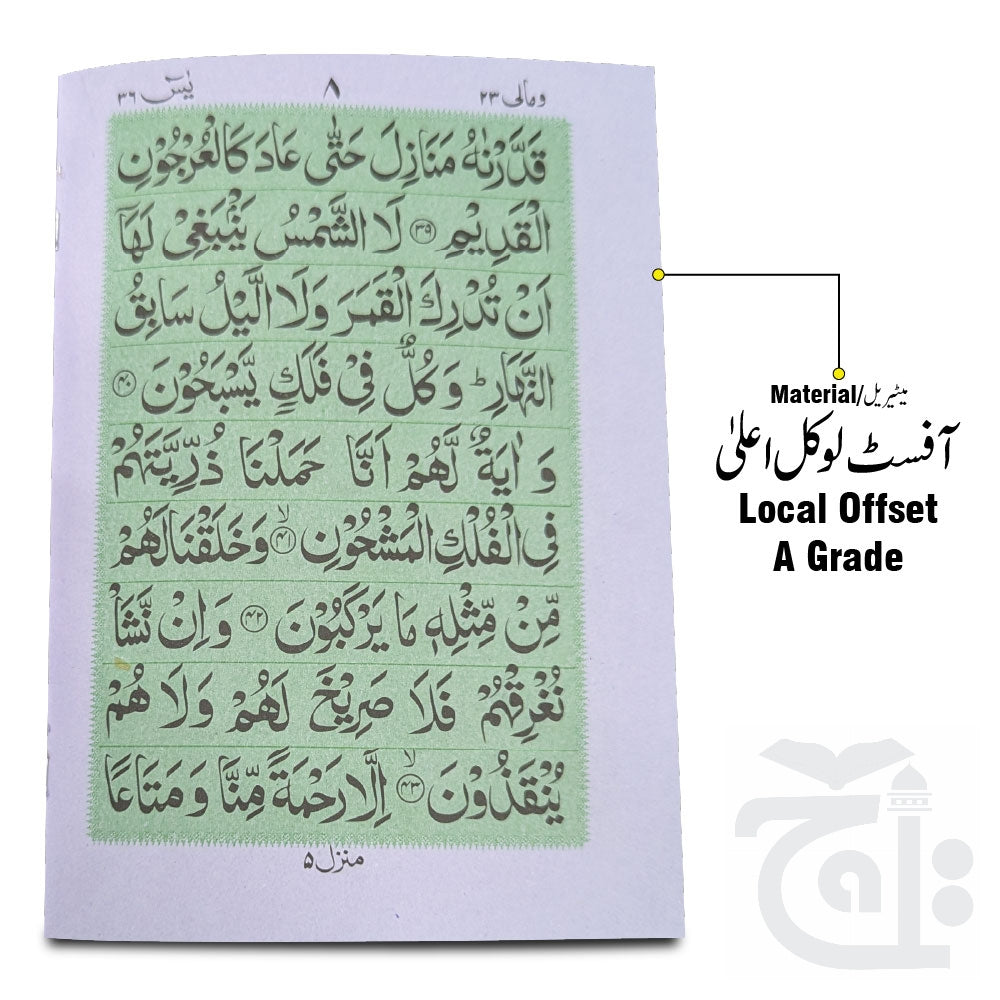 یٰسٓ ۳۶ ۸ ومالی ۲۳
قَدَّرْنٰهُ مَنَازِلَ حَتّٰى عَادَ كَالْعُرْجُوْنِ
الْقَدِيْمِ ۝۳۹ لَا الشَّمْسُ يَنْۢبَغِىْ لَهَاۤ
اَنْ تُدْرِكَ الْقَمَرَ وَلَا الَّيْلُ سَابِقُ
النَّهَارِ ؕ وَكُلٌّ فِىْ فَلَكٍ يَّسْبَحُوْنَ ۝۴۰
وَ اٰيَةٌ لَّهُمْ اَنَّا حَمَلْنَا ذُرِّيَّتَهُمْ
فِى الْفُلْكِ الْمَشْحُوْنِ ۙ۝۴۱ وَخَلَقْنَا لَهُمْ
مِّنْ مِّثْلِهٖ مَا يَرْكَبُوْنَ ۝۴۲ وَ اِنْ نَّشَاْ
نُغْرِقْهُمْ فَلَا صَرِيْخَ لَهُمْ وَلَا هُمْ
يُنْقَذُوْنَ ۙ۝۴۳ اِلَّا رَحْمَةً مِّنَّا وَ مَتَاعًا
منزل ۵
Material/میٹیریل
آفسٹ لوکل اعلیٰ
Local Offset
A Grade